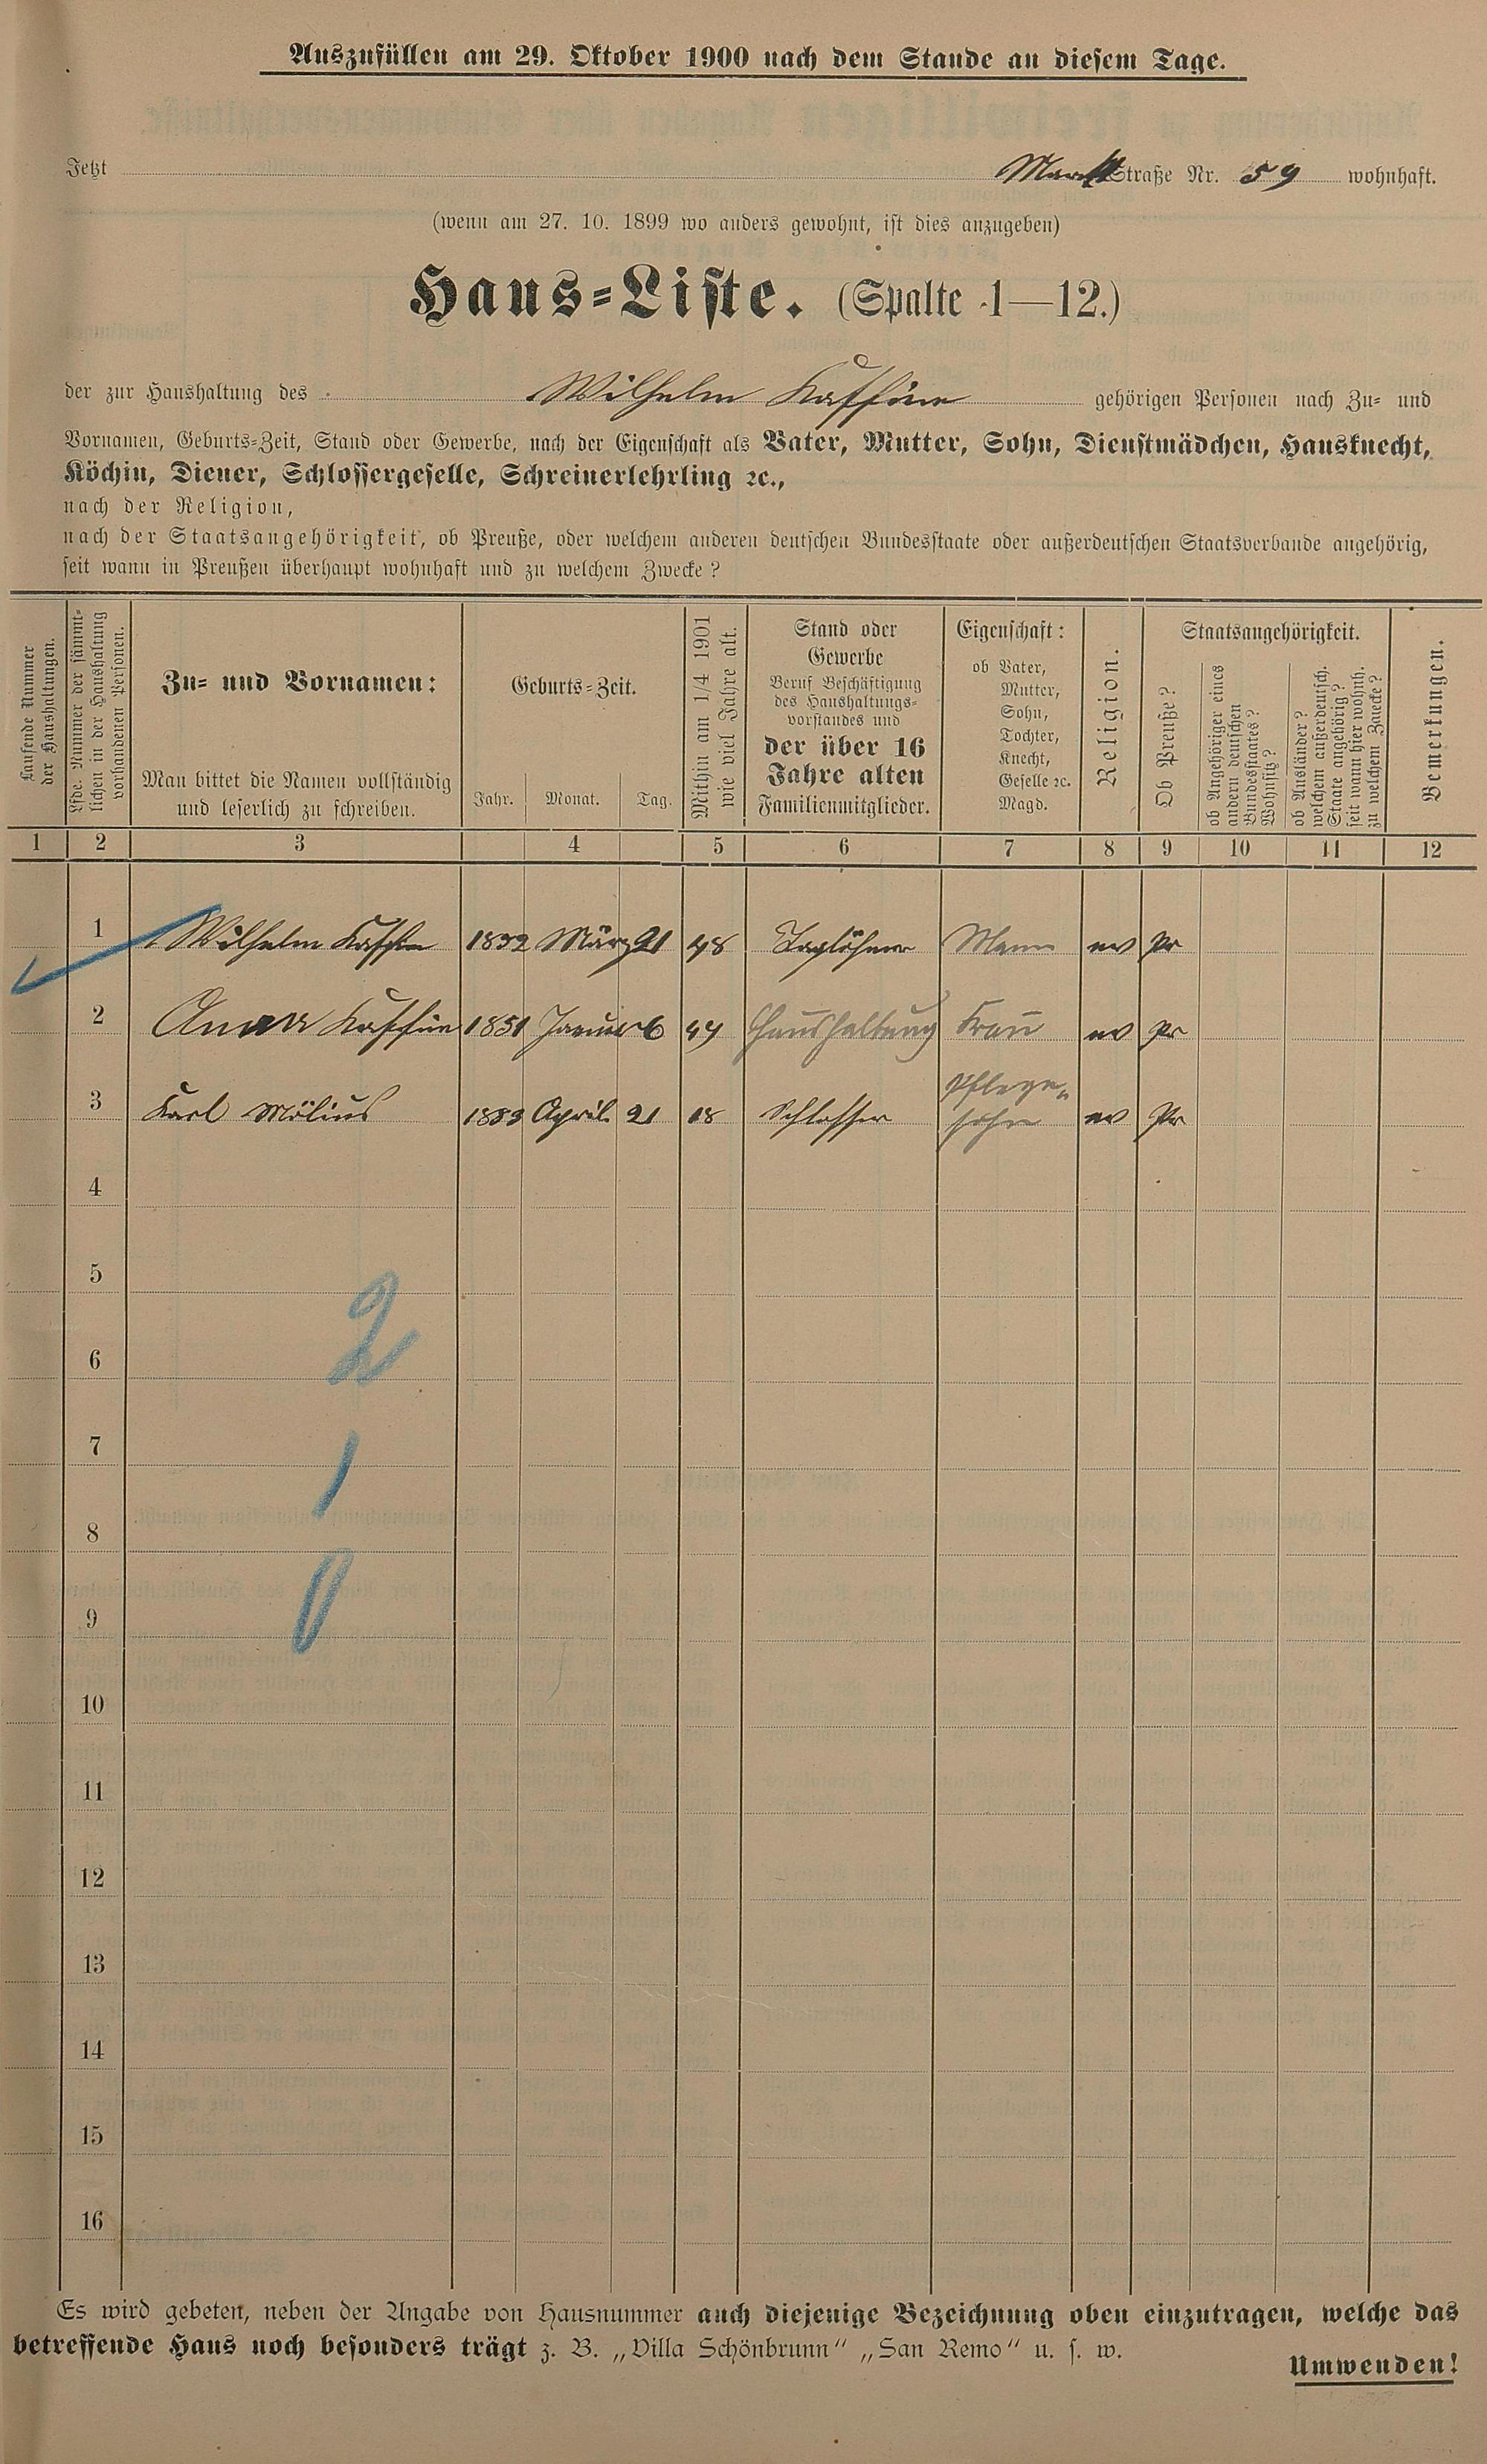 Auszufüllen am 29. Oktober 1900 nach dem Stande an diesem Tage.
Jetzt Straße Nr. 59 wohnhaft.
(wenn am 27. 10. 1899 wo anders gewohnt, ist dies anzugeben)
Haus-Liste. (Spalte 1—12.)
der zur Haushaltung des Wilhelm gehörigen Personen nach Zu- und
Vornamen, Geburts-Zeit, Stand oder Gewerbe, nach der Eigenschaft als Vater, Mutter, Sohn, Dienstmädchen, Hausknecht,
Köchin, Diener, Schlossergeselle, Schreinerlehrling ꝛc.,
nach der Religion,
nach der Staatsangehörigkeit, ob Preuße, oder welchem anderen deutschen Bundesstaate oder außerdeutschen Staatsverbande angehörig,
seit wann in Preußen überhaupt wohnhaft und zu welchem Zwecke?
Laufende Nummer
der Haushaltungen.
Lfde. Nummer der sämmt-
lichen in der Haushaltung
vorhandenen Personen.
Zu- und Vornamen:
Man bittet die Namen vollständig
und leserlich zu schreiben.
Geburts-Zeit.
Jahr. Monat. Tag.
Mithin am 1/4 1901
wie viel Jahre alt.
Stand oder
Gewerbe
Beruf Beschäftigung
des Haushaltungs-
vorstandes und
der über 16
Jahre alten
Familienmitglieder.
Eigenschaft:
ob Vater,
Mutter,
Sohn,
Tochter,
Knecht,
Geselle ꝛc.
Magd.
Religion.
Staatsangehörigkeit.
Ob Preuße?
ob Angehöriger eines
andern deutschen
Bundesstaates?
Wohnsitz?
ob Ausländer?
welchem außerdeutsch.
Staate angehörig?
seit wann hier wohnh.
zu welchem Zwecke?
Bemerkungen.
1 2 3 4 5 6 7 8 9 10 11 12
1 Wilhelm März 21 48 Taglöhner Mann ev Pr
2 Anna 1851 Januar 6 49 Haushaltung Frau ev Pr
3 Karl Mölius 1883 April 21 18 Schlosser Pflege-
sohn ev Pr
4
5
2
6
7
1
8
0
9
10
11
12
13
14
15
16
Es wird gebeten, neben der Angabe von Hausnummer auch diejenige Bezeichnung oben einzutragen, welche das
betreffende Haus noch besonders trägt z. B. „Villa Schönbrunn" „San Remo" u. s. w.
Umwenden!